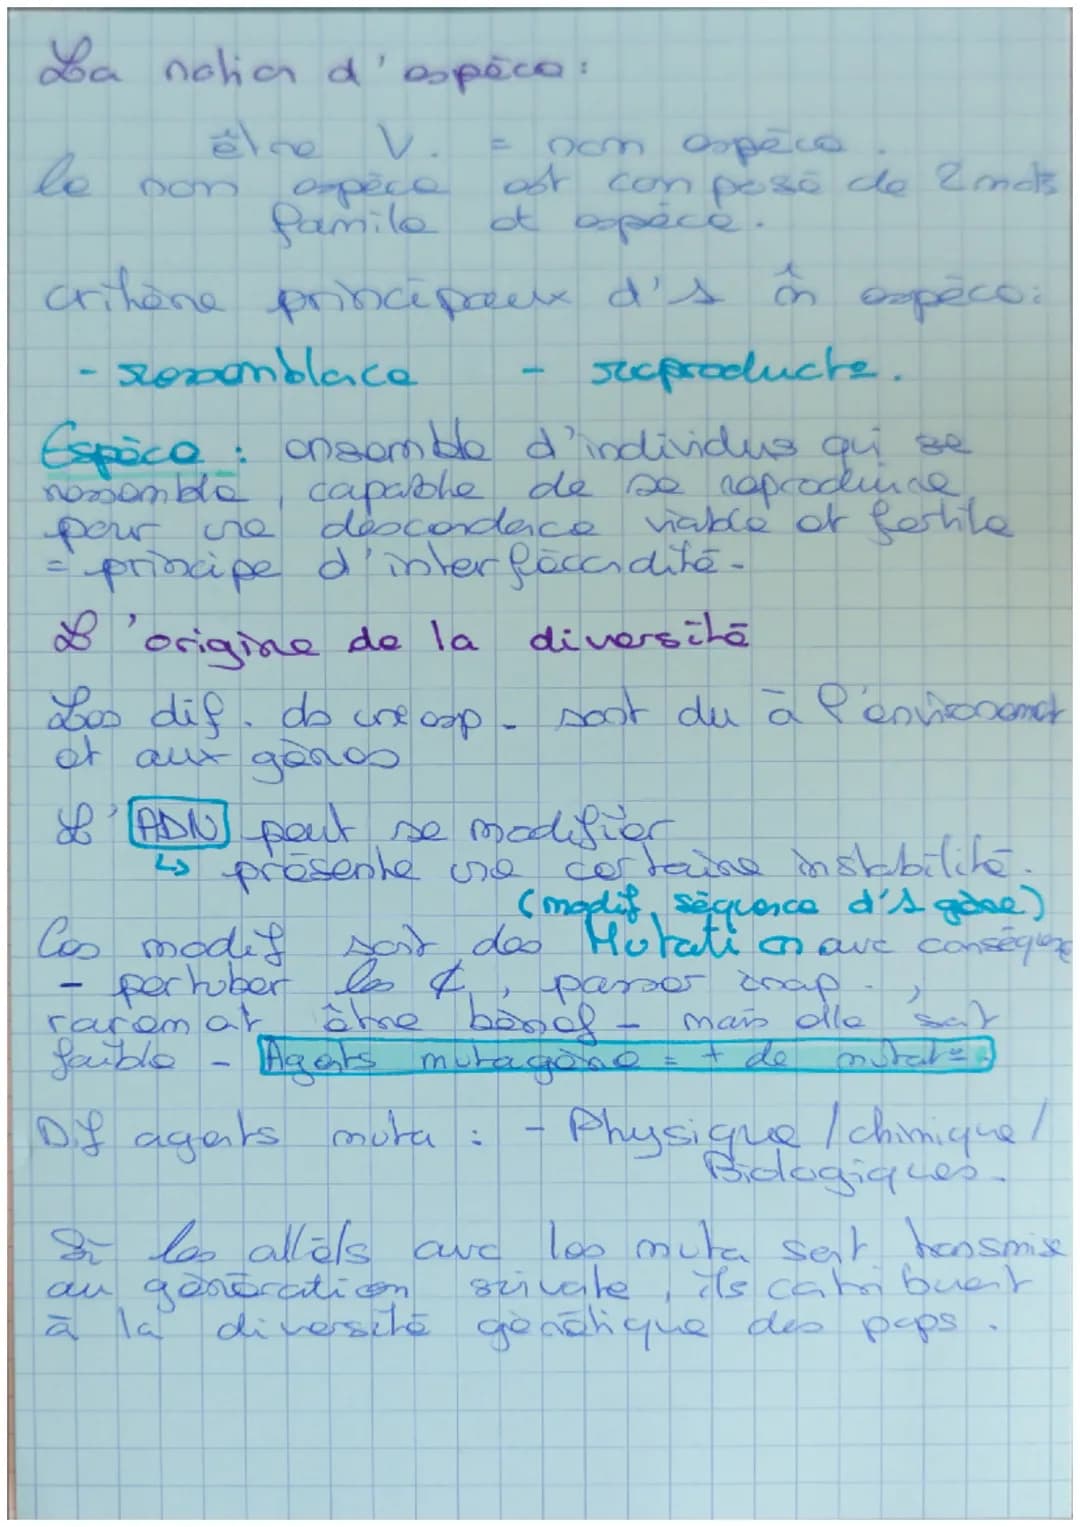 La notion d'espèce :
être V. = nom espèce.
le nom espèce est composé de 2 mots
famile et espèce.
critère principaux d'1 m̂ espèce :
- ressemblance - reproduct°.
Espèce : ensemble d'individus qui se
ressemble, capable de se reproduire
pour une descendance viable et fertile
= principe d'interfécondité -
L'origine de la diversité
Les dif. ds une esp. sont du à l'environement
et aux gènes
L'ADN peut se modifier
↳ présente une certaine instabilité.
(modif, séquence d'1 gène)
Ces modif sont des Mutation avc conséquence
- pertuber les ¢, passer inap.,
rarement être bénef - mais elle sont
faible - Agents mutagène = + de mutat°.
Dif agents muta : - Physique / chimique /
Biologiques.
Si les allèls avc les muta sont transmise
au génération suivante, ils contribuent
à la diversité génétique des pops.